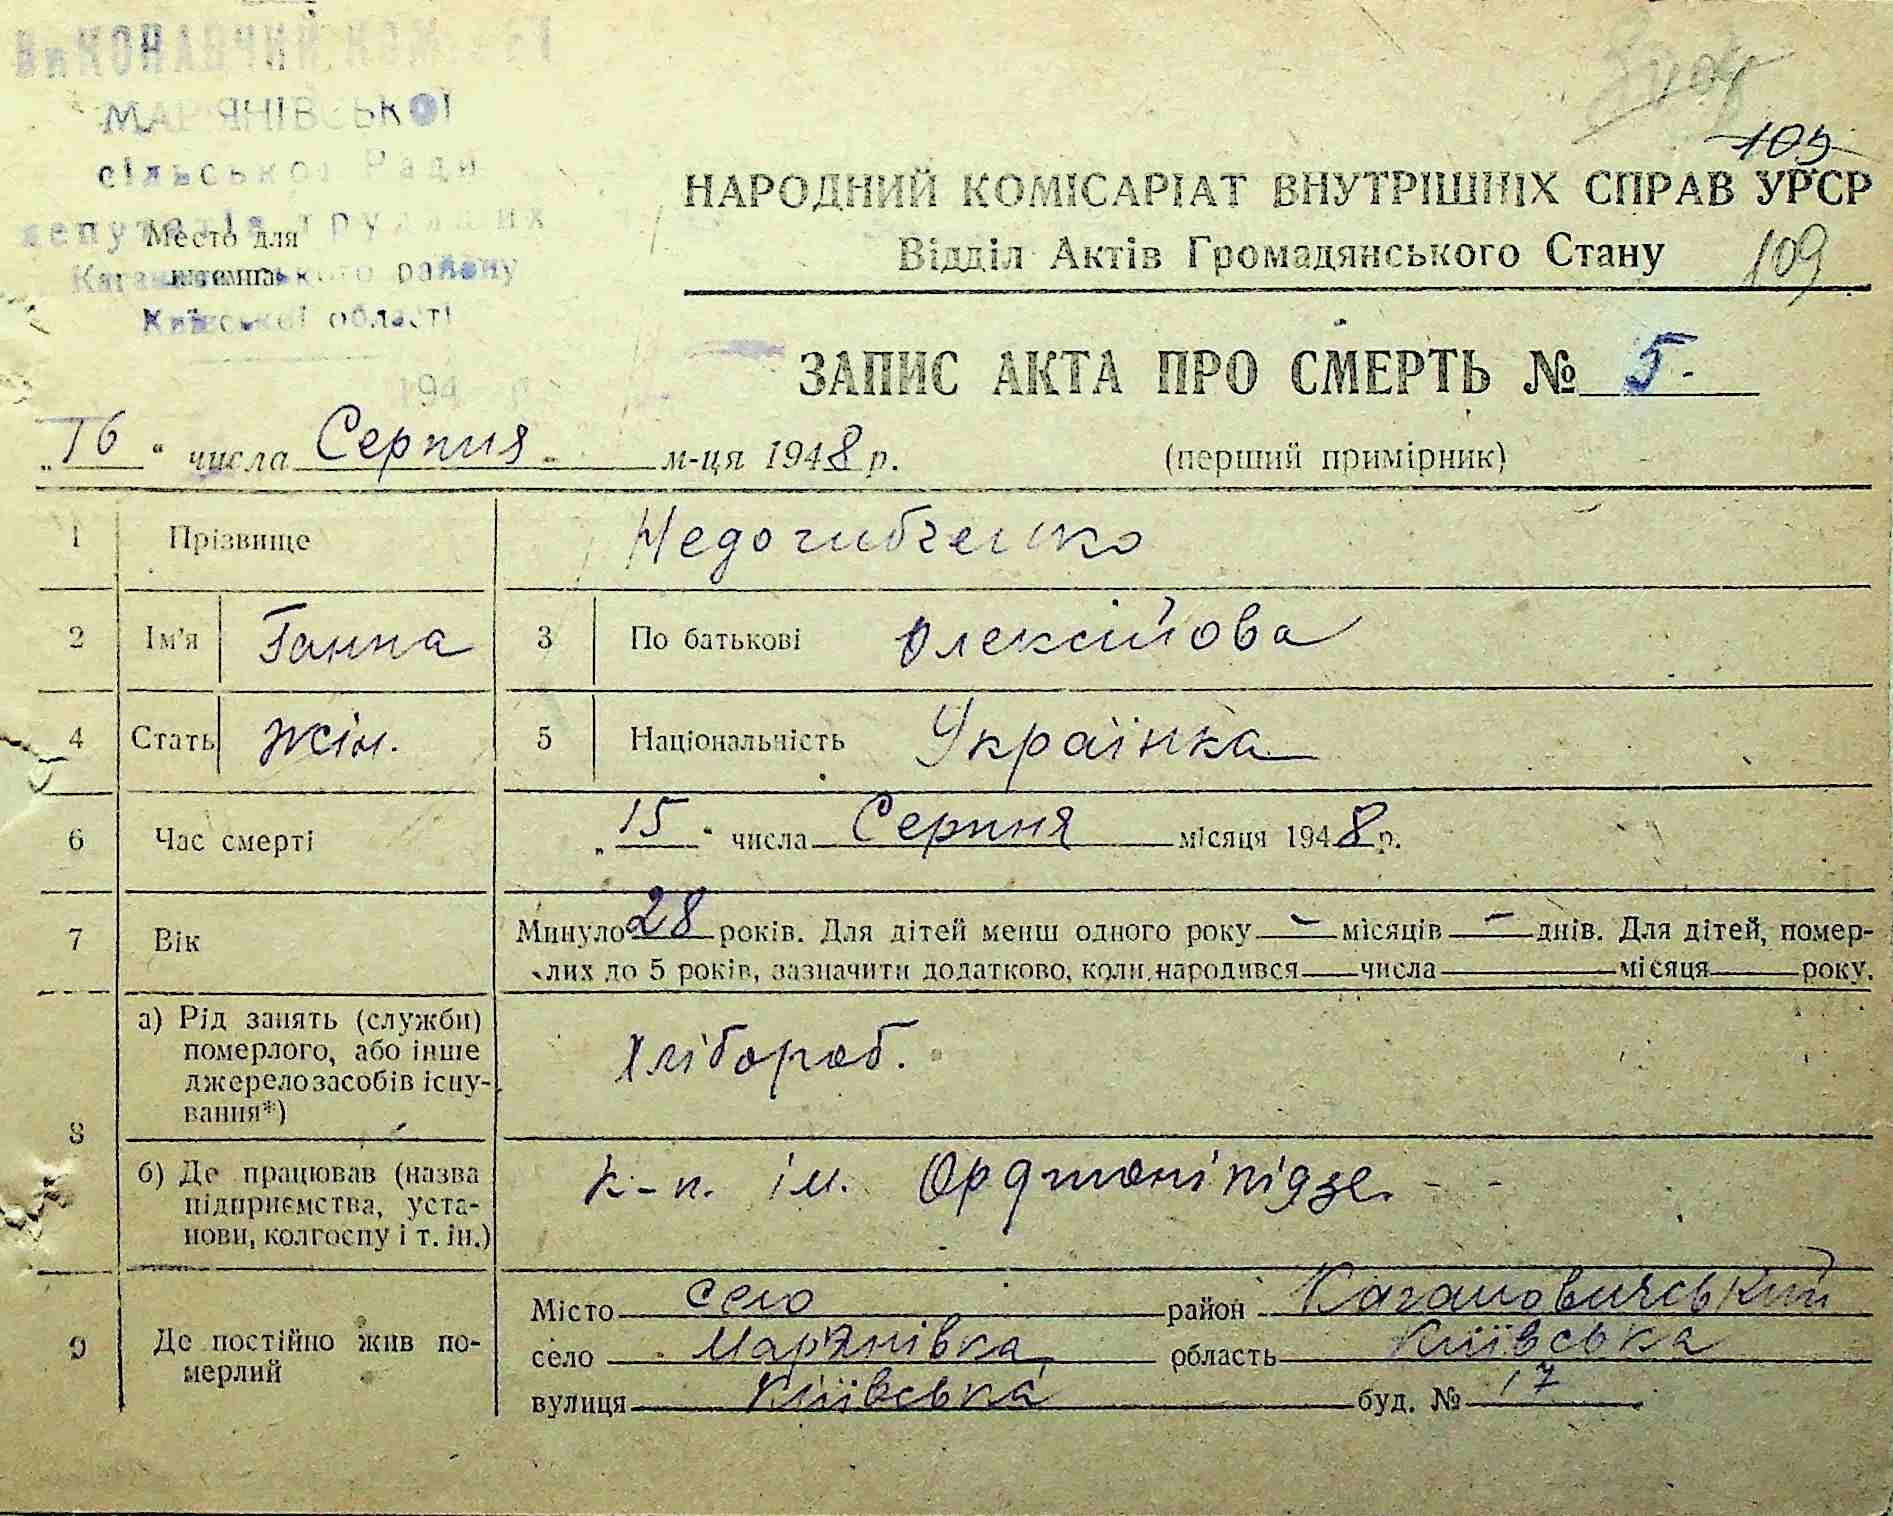 ВИКОНАВЧИЙ КОМІТЕТ
МАР'ЯНІВСЬКОЇ
сільської Ради
депутатів трудящих
Место для
штемпа
Кагановичського району
Київської області
194 р.
105
НАРОДНИЙ КОМІСАРІАТ ВНУТРІШНІХ СПРАВ УРСР
Відділ Актів Громадянського Стану 109
ЗАПИС АКТА ПРО СМЕРТЬ № 5.
„16“ числа Серпня м-ця 1948 р. (перший примірник)
1 Прізвище Недогибченко
2 Ім'я Ганна 3 По батькові Олексійова
4 Стать жін. 5 Національність Українка
6 Час смерті „15“ числа Серпня місяця 1948 р.
7 Вік Минуло 28 років. Для дітей менш одного року – місяців – днів. Для дітей, помер-
лих до 5 років, зазначити додатково, коли народився числа місяця року.
8 а) Рід занять (служби)
померлого, або інше
джерело засобів існу-
вання*)
Хлібороб.
б) Де працював (назва
підприємства, уста-
нови, колгоспу і т. ін.)
к-п. ім. Орджонікідзе. - -
9 Де постійно жив по-
мерлий
Місто село район Кагановичський
село Мар'янівка область Київська
вулиця Київська буд. № 17